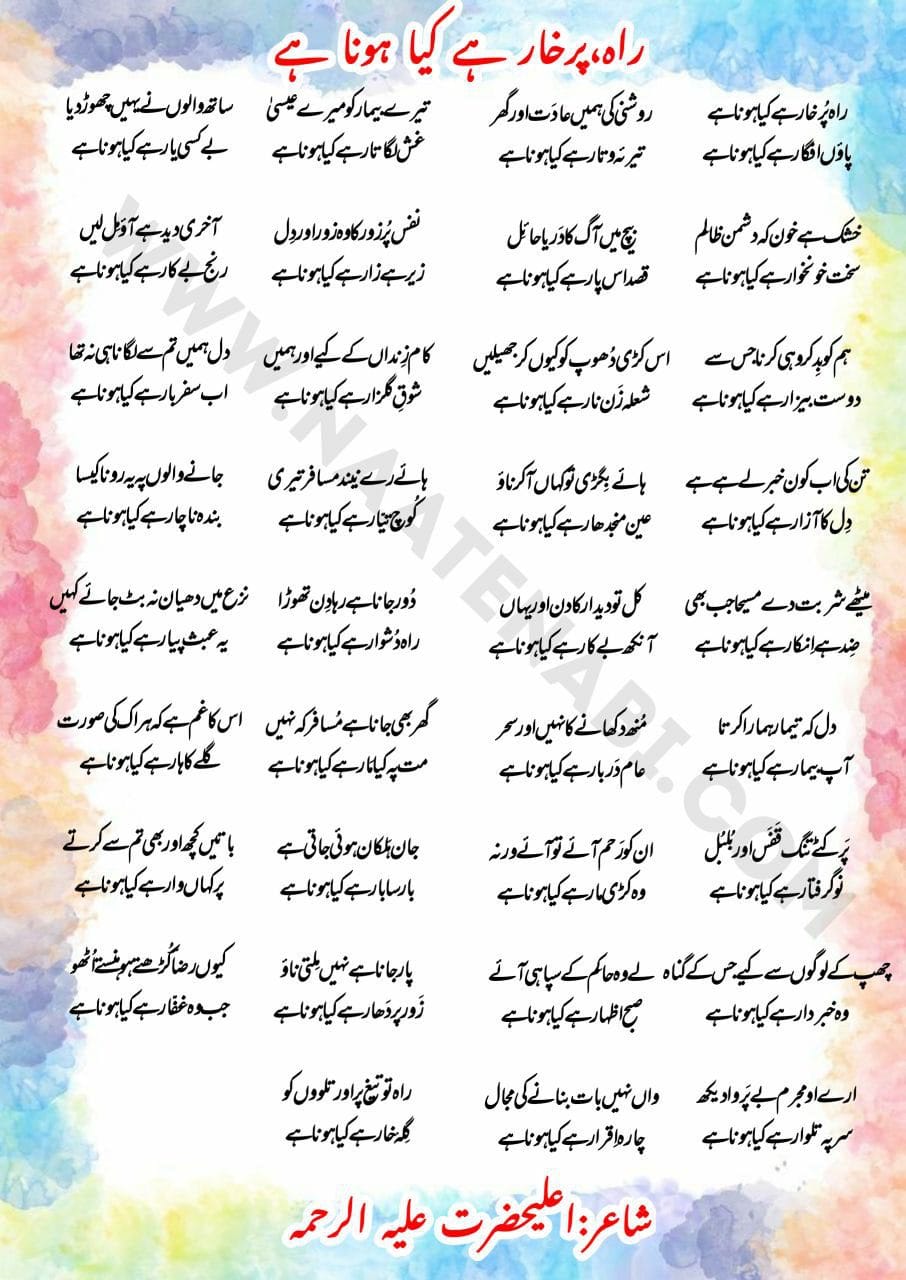 راہ، پرخار ہے کیا ہونا ہے
راہ پُرخار ہے کیا ہونا ہے
پاؤں افگار ہے کیا ہونا ہے
خشک ہے خون کہ دشمن ظالم
سخت خونخوار ہے کیا ہونا ہے
ہم کو بِد کر وہی کرنا جس سے
دوست بیزار ہے کیا ہونا ہے
تن کی اب کون خبر لے ہے ہے
دِل کا آزار ہے کیا ہونا ہے
میٹھے شربت دے مسیحا جب بھی
ضِد ہے انکار ہے کیا ہونا ہے
دل کہ تیمار ہمارا کرتا
آپ بیمار ہے کیا ہونا ہے
پَر کٹے تنگ قَفَس اور بُلبُل
نوگرفتار ہے کیا ہونا ہے
چھپ کے لوگوں سے کیے جس کے گناہ
وہ خبردار ہے کیا ہونا ہے
ارے او مجرم بے پَروا دیکھ
سر پہ تلوار ہے کیا ہونا ہے
روشنی کی ہمیں عادَت اور گھر
تیرئہ و تار ہے کیا ہونا ہے
بیچ میں آگ کا دَریا حائل
قصد اس پار ہے کیا ہونا ہے
اس کڑی دُھوپ کو کیوں کر جھیلیں
شعلہ زَن نار ہے کیا ہونا ہے
ہائے بِگڑی تو کہاں آ کر ناؤ
عین منجدھار ہے کیا ہونا ہے
کل تو دیدار کا دن اور یہاں
آنکھ بے کار ہے کیا ہونا ہے
مُنھ دکھانے کا نہیں اور سحر
عام دَربار ہے کیا ہونا ہے
ان کو رَحم آئے تو آئے ورنہ
وہ کڑی مار ہے کیا ہونا ہے
لے وہ حاکم کے سپاہی آئے
صبح اظہار ہے کیا ہونا ہے
واں نہیں بات بنانے کی مجال
چارہ اقرار ہے کیا ہونا ہے
تیرے بیمار کو میرے عیسیٰ
غش لگاتار ہے کیا ہونا ہے
نفس پُرزور کا وہ زور اور دِل
زیر ہے زار ہے کیا ہونا ہے
کام زِنداں کے کیے اور ہمیں
شوقِ گلزار ہے کیا ہونا ہے
ہائے رے نیند مسافر تیری
کُوچ تیّار ہے کیا ہونا ہے
دُور جانا ہے رہا دِن تھوڑا
راہ دُشوار ہے کیا ہونا ہے
گھر بھی جانا ہے مُسافر کہ نہیں
مت پہ کیا مَار ہے کیا ہونا ہے
جان ہلکان ہوئی جاتی ہے
بار سا بار ہے کیا ہونا ہے
پار جانا ہے نہیں مِلتی ناؤ
زَور پر دَھار ہے کیا ہونا ہے
راہ تو تیغ پر اور تلووں کو
گِلۂ خار ہے کیا ہونا ہے
ساتھ والوں نے یہیں چھوڑ دیا
بے کسی یار ہے کیا ہونا ہے
آخری دید ہے آؤ مِل لیں
رنج بے کار ہے کیا ہونا ہے
دل ہمیں تم سے لگانا ہی نہ تھا
اب سفر بار ہے کیا ہونا ہے
جانے والوں پہ یہ رونا کیسا
بندہ ناچار ہے کیا ہونا ہے
نزع میں دھیان نہ بٹ جائے کہیں
یہ عبث پیار ہے کیا ہونا ہے
اس کا غم ہے کہ ہر اک کی صورت
گلے کا ہار ہے کیا ہونا ہے
باتیں کچھ اور بھی تم سے کرتے
پر کہاں وار ہے کیا ہونا ہے
کیوں رضا کُڑھتے ہو ہنستے اُٹھو
جب وہ غفّار ہے کیا ہونا ہے
شاعر: اعلیحضرت علیہ الرحمہ
WWW.NAATENABI.COM